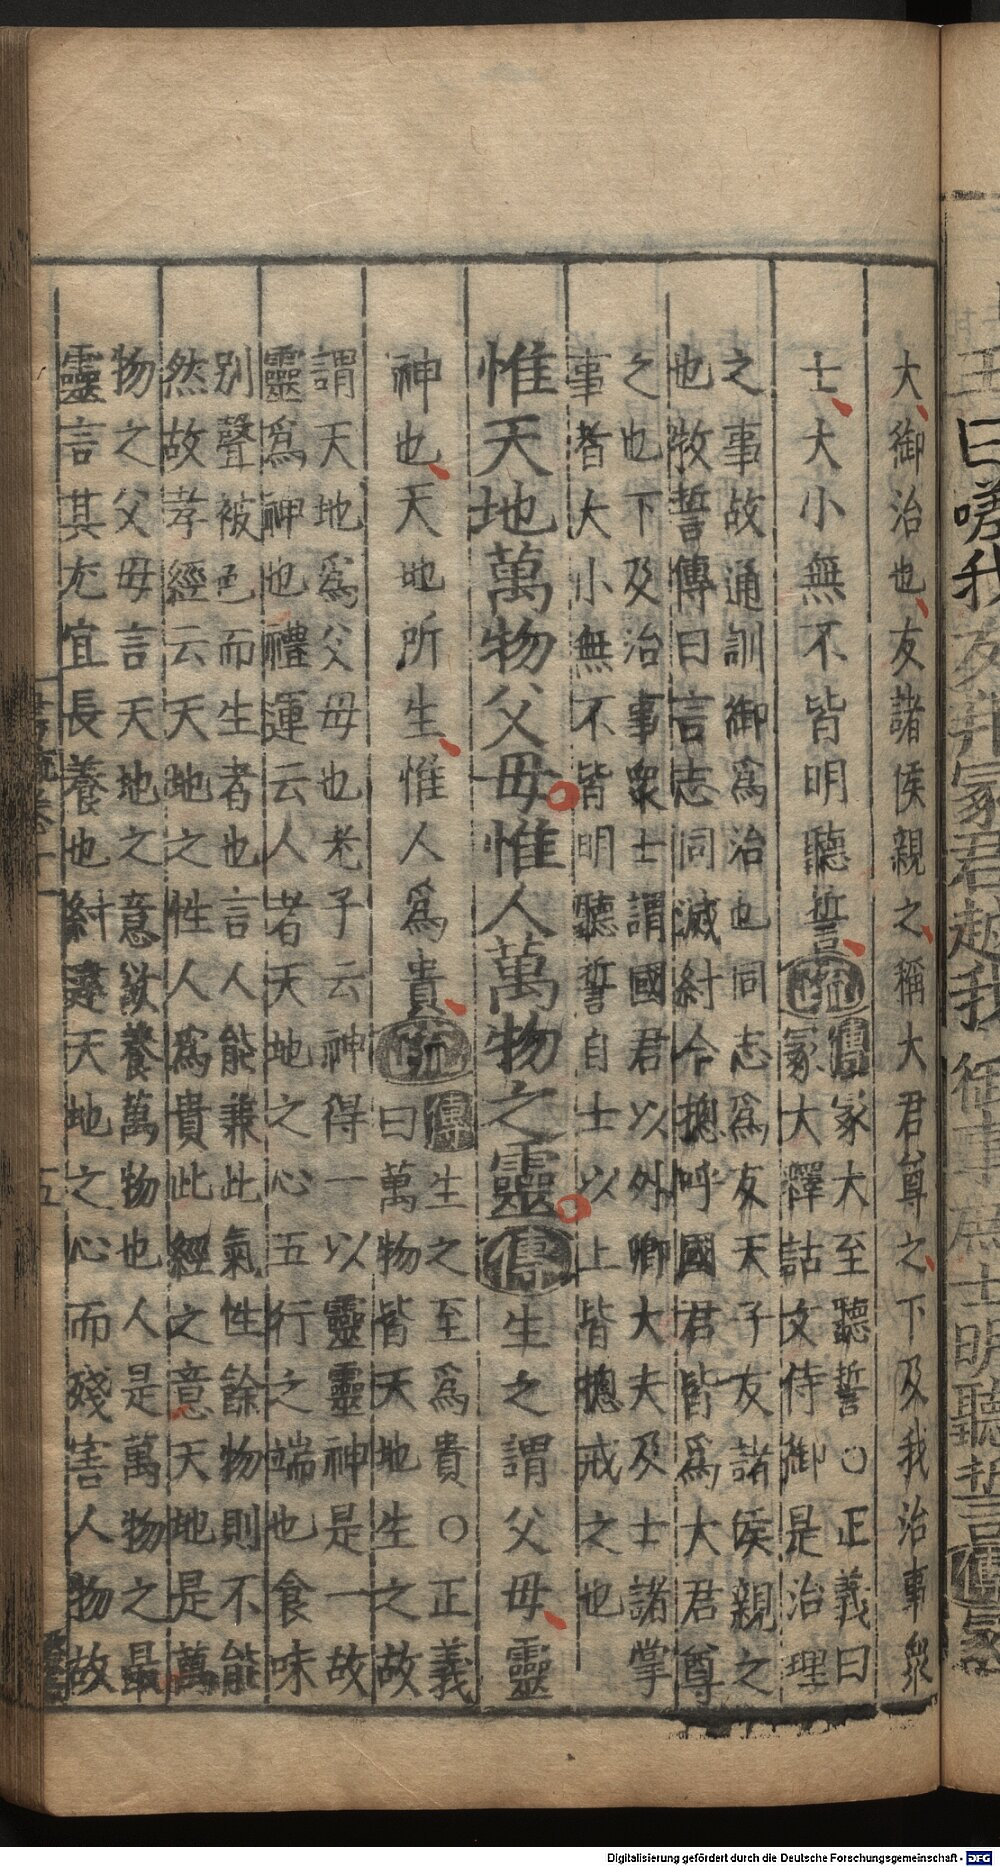 王曰嗟我友邦冢君越我御事庶士明聽誓傳冢
大御治也友諸侯親之稱大君尊之下及我治事衆
士大小無不皆明聽誓疏傳冢大至聽誓○正義曰
冢大釋詁文侍御是治理
之事故通訓御爲治也同志爲友天子友諸侯親之
也牧誓傳曰言志同滅紂今摠呼國君皆爲大君尊
之也下及治事衆士謂國君以外卿大夫及士諸掌
事者大小無不皆明聽誓自士以上皆摠戒之也
惟天地萬物父母惟人萬物之靈傳生之謂父母靈
神也天地所生惟人爲貴疏傳生之至爲貴○正義
曰萬物皆天地生之故
謂天地爲父母也老子云神得一以靈靈神是一故
靈爲神也禮運云人者天地之心五行之端也食味
別聲被色而生者也言人能兼此氣性餘物則不能
然故孝經云天地之性人爲貴此經之意天地是萬
物之父母言天地之意欲養萬物也人是萬物之最
靈言其尤宜長養也紂違天地之心而殘害人物故
五
Digitalisierung gefördert durch die Deutsche Forschungsgemeinschaft - DFG